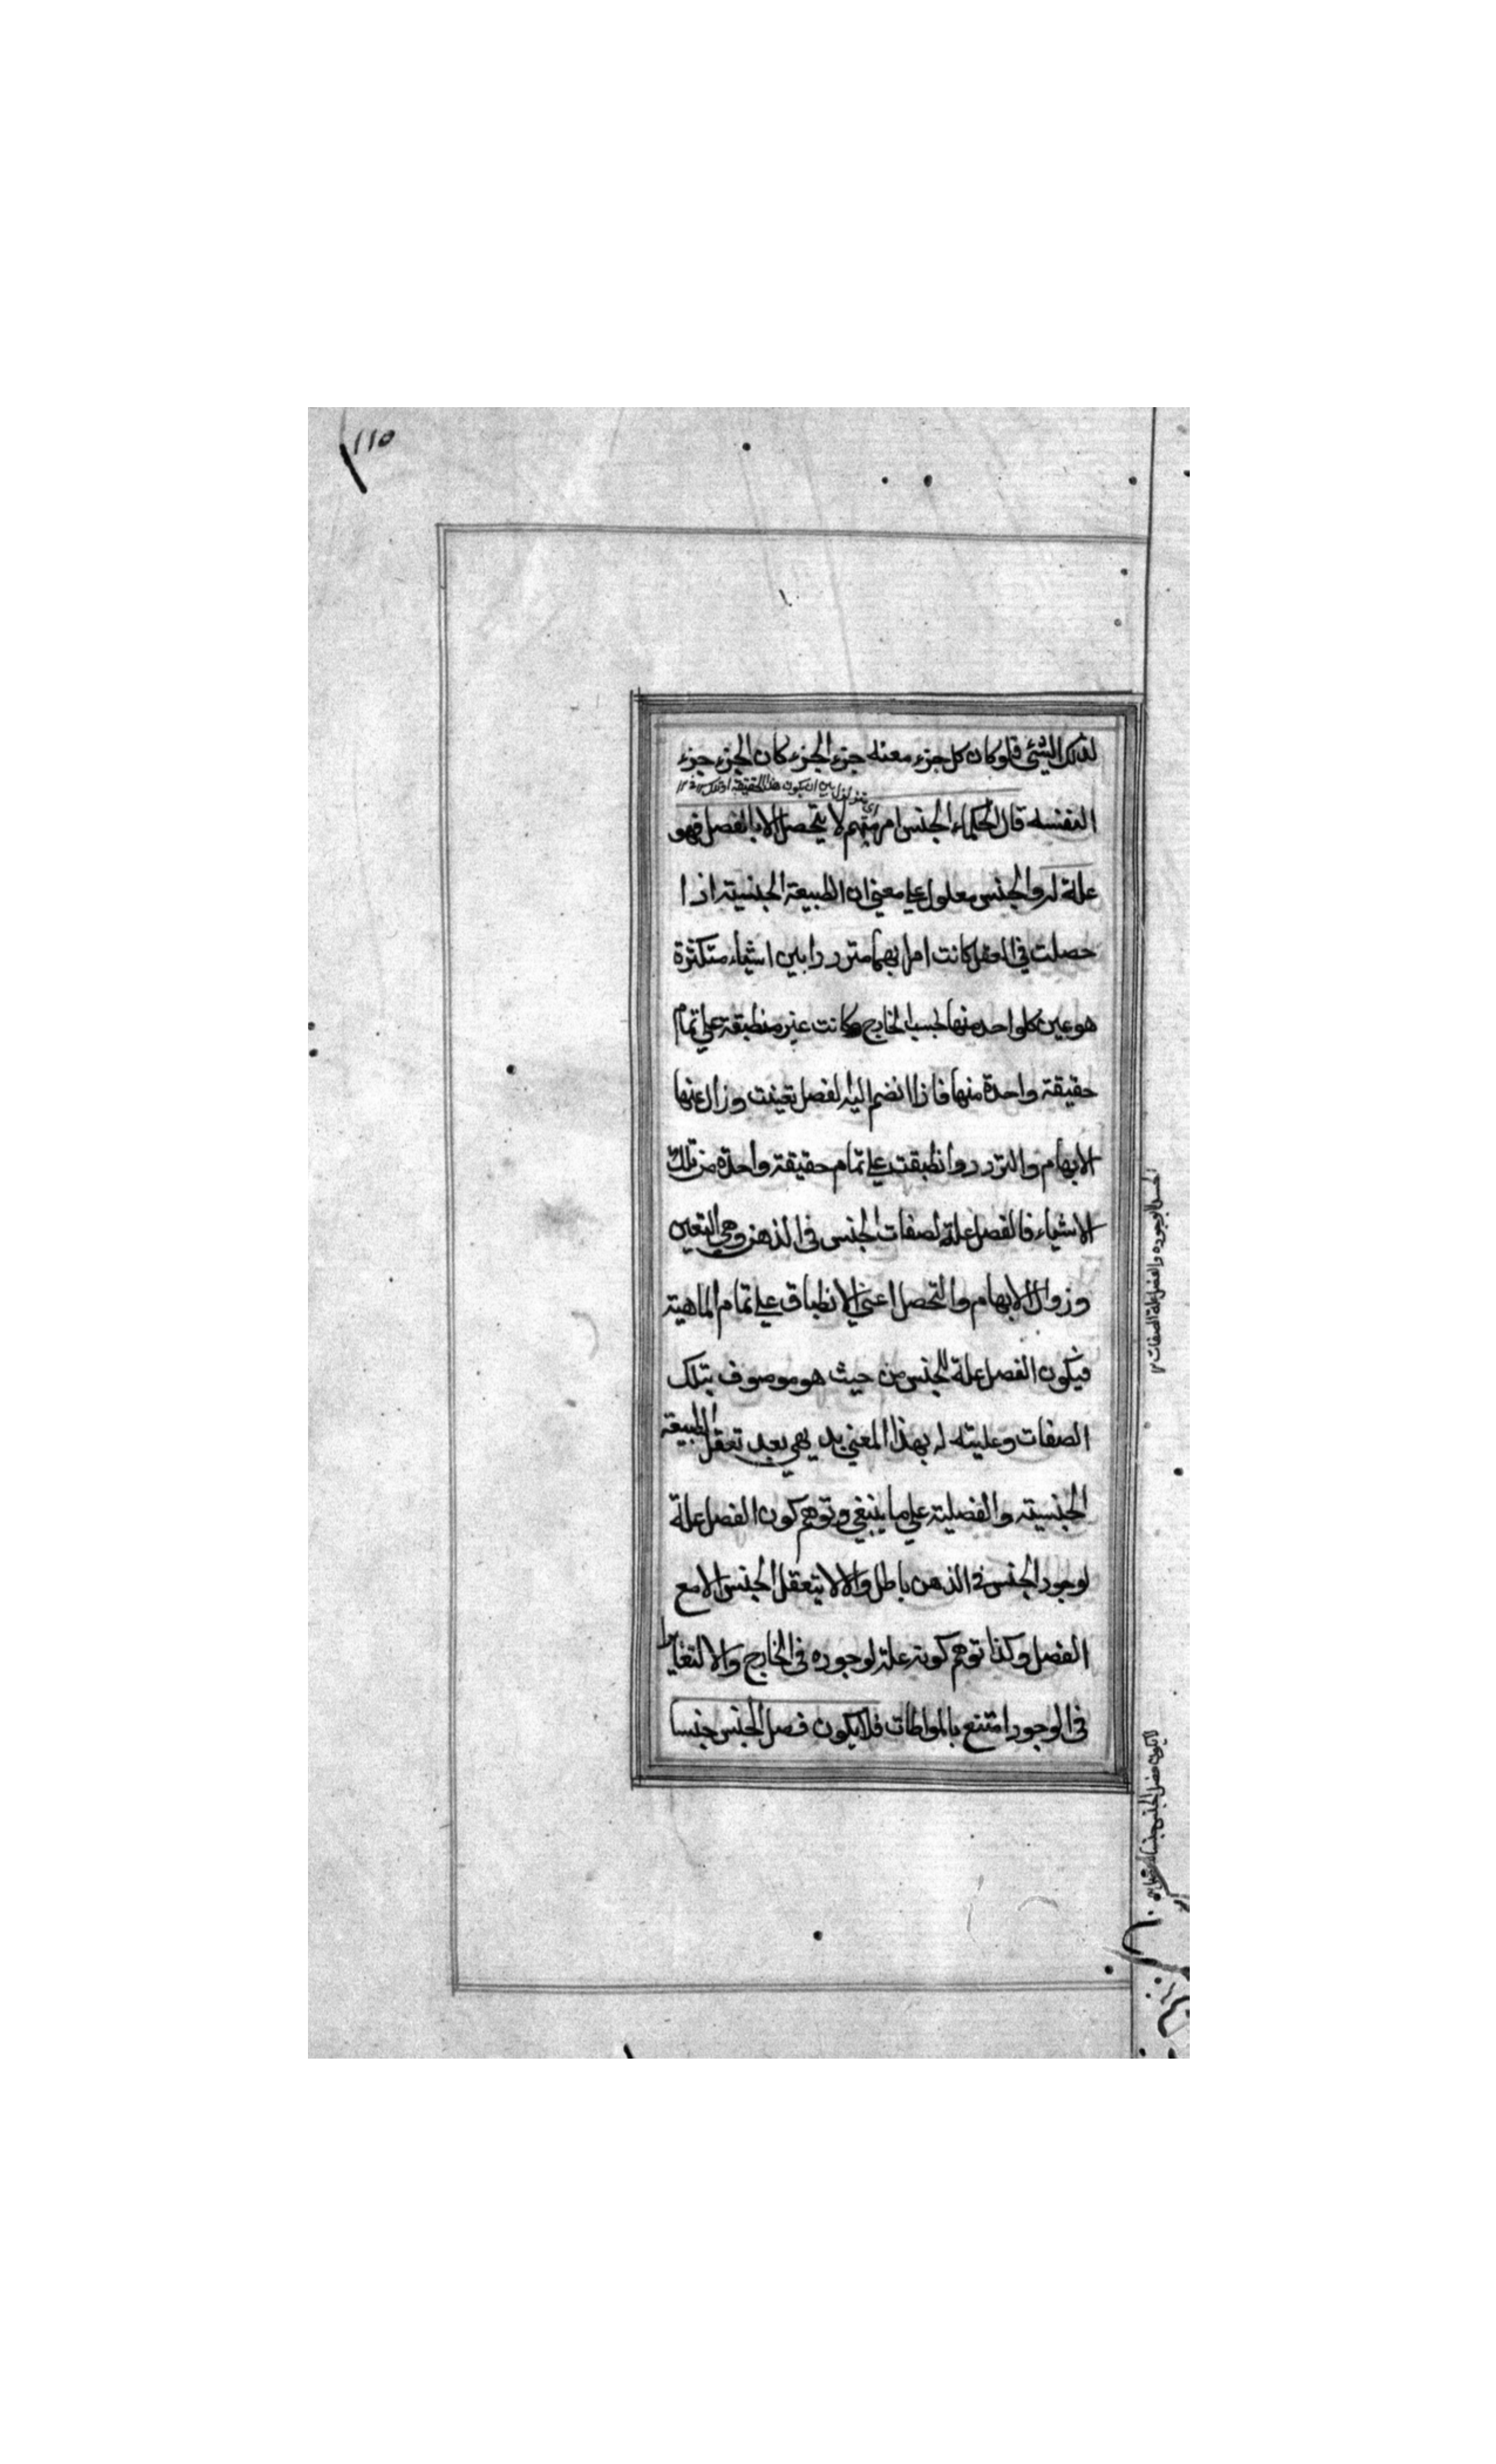 ١١٥
لذلك الشئ فلو كان كل جزء معنه جزء الجزء كان الجزء جزء
اى متردد بين ان يكون هذا الحقيقة او تلك ١٢
النفسه قال الحكماء الجنس امر مبهم لا يتحصل الا بالفصل فهو
علة له والجنس معلول علي معني ان الطبيعة الجنسيته اذا
حصلت في العقل كانت امرا بهما مترددا بين اشياء متكثرة
هو عين كلواحد منها بحسب الخارج وكانت غير منطبقة علي تمام
حقيقة واحدة منها فاذا انضم اليه الفصل تعينت وزال عنها
الابهام والتردد وانطبقت علي تمام حقيقة واحدة من تلك
الاشياء فالفصل علة لصفات الجنس في الذهن وهي التعين
وزوال الابهام والتحصل اعني الانطباق علي تمام الماهية
فيكون الفصل علة للجنس من حيث هو موصوف بتلك
الصفات وعليته له بهذا المعني بديهي بعد تعقل الطبيعة
الجنسيته والفصليته علي ما ينبغي وتوهم كون الفصل علة
لوجود الجنس في الذهن باطل والا لا يتعقل الجنس الا مع
الفصل وكذا توهم كونه علة لوجوده في الخارج والا لتغايرا
في الوجود امتنع بالمواطات فلا يكون فصل الجنس جنسا
لوجوده والفصل علة الصفات ١٢
لا يكون فصل الجنس جنسا